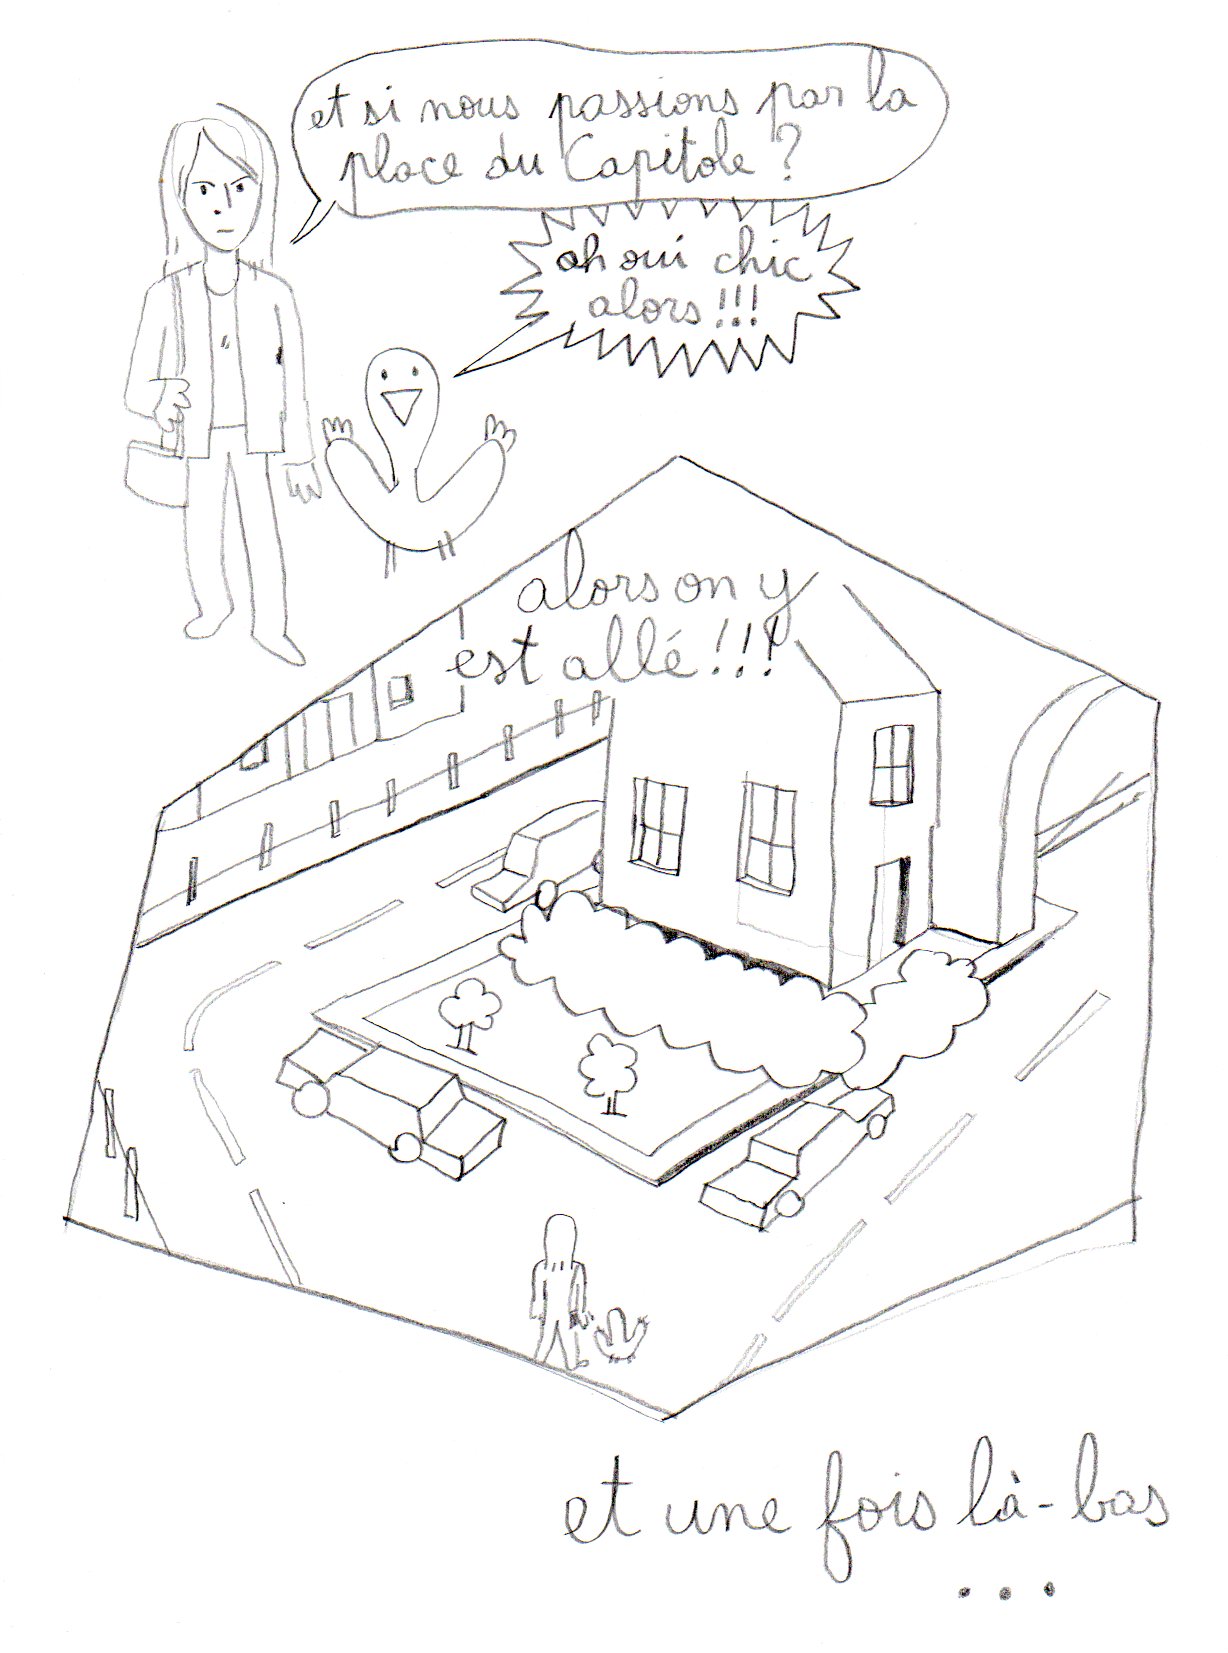 et si nous passions par la
place du Capitole ?
ah oui chic
alors !!!
alors on y
est allé !!!
et une fois là-bas
...